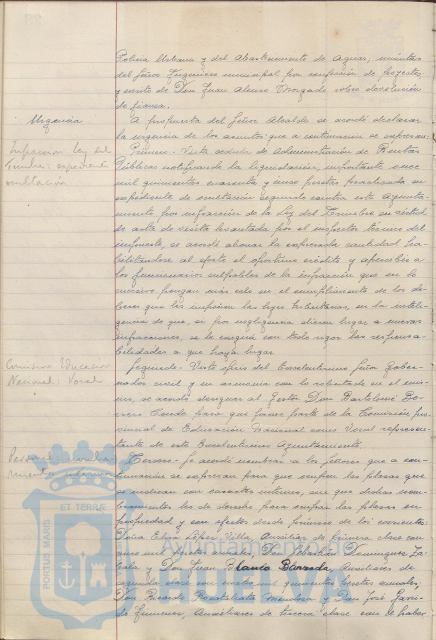 Policía Urbana y del Abastecimiento de Aguas, minutas
del Señor Ingeniero municipal por confección de Proyectos,
y escrito de Don Juan Alonso Vizcaya sobre devolución
de fianza.
Urgencia
A propuesta del Señor Alcalde se acordó declarar
la urgencia de los asuntos que a continuación se expresan.
Infracción Ley del
Timbre: expediente
Primero.- Vista cédula de Administración de Rentas
Públicas notificando la liquidación, importante once
mil quinientas cuarenta y pesetas practicada en
expediente de seguido contra este Ayunta-
miento por infracción de la Ley del Timbre en virtud
de acta de visita levantada por el inspector técnico del
impuesto, se acordó abonar la expresada cantidad ha-
bilitándose al efecto el oportuno crédito y apercibir a
los funcionarios culpables de la infracción que en lo
sucesivo pongan más celo en el cumplimiento de los de-
beres que les imponen las leyes tributarias, en la inteli-
gencia de que, si por negligencia dieran lugar a nuevas
infracciones, se les exigirá con todo rigor las responsa-
bilidades a que haya lugar.
Comisión Educación
Nacional: Vocal
Segundo.- Visto oficio del Excelentísimo Señor Gober-
nador civil y en armonía con lo solicitado en el mis-
mo, se acordó designar al Gestor Don Bartolomé
para que forme parte de la Comisión pro-
vincial de Educación Nacional como Vocal represen-
tante de este Excelentísimo Ayuntamiento.
Personal
Tercero.- Se acordó nombrar a los señores que a con-
tinuación se expresan para que ocupen las plazas que
se indican con carácter interino, sin que dichos nom-
bramientos les de derecho para ocupar las plazas en
propiedad y con efectos desde primero de los corrientes:
Doña López Villa, Auxiliar de primera clase con
Don Domínguez
y Don Juan Blanco Parrada, Auxiliares de
segunda clase con mil quinientas pesetas anuales;
Don Ricardo Mendoza y Don José
Giménez, Auxiliares de tercera clase con el haber
PORTUS MARIS ET TERRAE
Ayuntamiento de